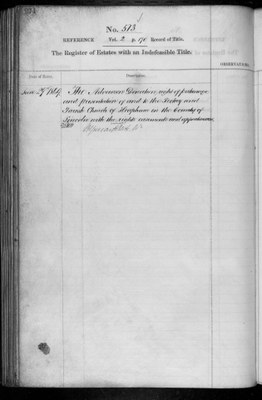 No. 513
REFERENCE Vol. 2 p. Record of Title.
The Register of Estates with an Indefeasible Title.
OBSERVATIONS
Date of Entry. Description.
June 29 1869 The Advowson Donative right of patronage
and presentation of and to the Rectory and
Parish Church of in the County of
Lincoln with the rights members and appurtenances